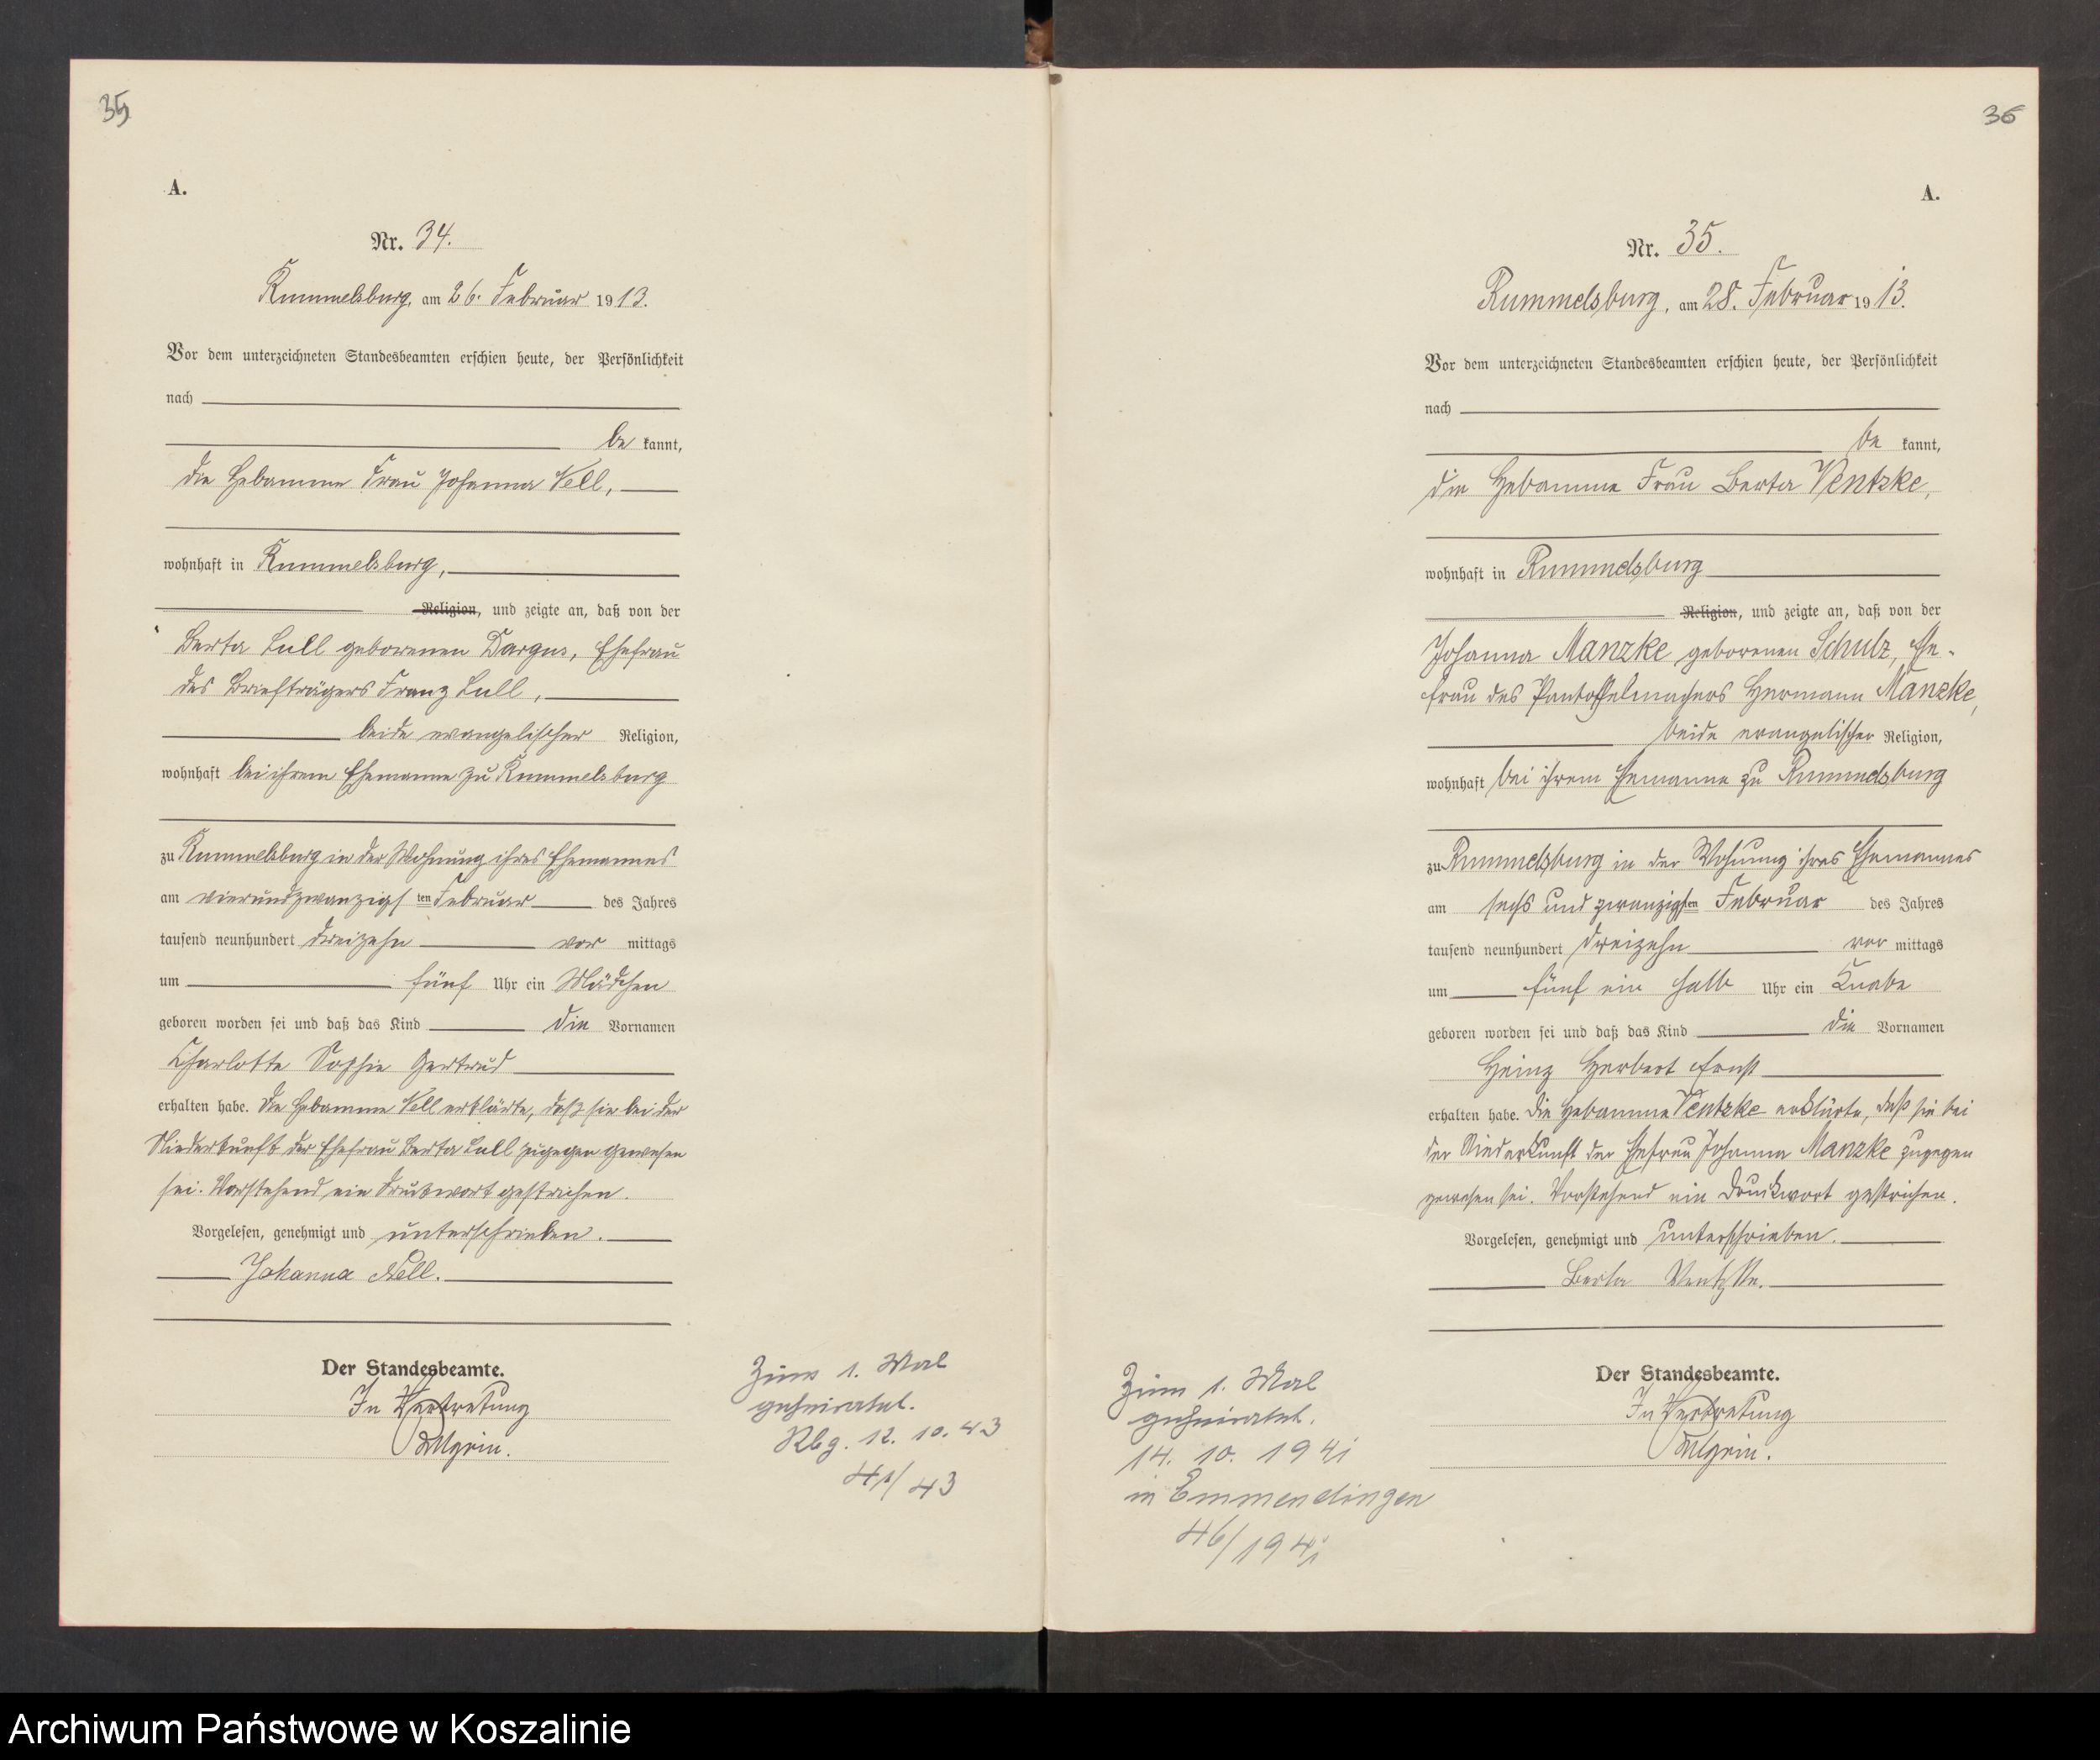 35
A.
Nr. 34.
Rummelsburg, am 26. Februar 1913.
Vor dem unterzeichneten Standesbeamten erschien heute, der Persönlichkeit
nach
be kannt,
die Hebamme Frau Johanna Nell,
wohnhaft in Rummelsburg,
Religion, und zeigte an, daß von der
Berta Lull geborenen Dargus, Ehefrau
des Briefträgers Franz Lull,
beide evangelischer Religion,
wohnhaft bei ihrem Ehemanne zu Rummelsburg
zu Rummelsburg in der Wohnung ihres Ehemannes
am vierundzwanzigsten Februar des Jahres
tausend neunhundert dreizehn vor mittags
um fünf Uhr ein Mädchen
geboren worden sei und daß das Kind die Vornamen
Charlotte Sophie Gertrud
erhalten habe. Die Hebamme Nell erklärte, daß sie bei der
Niederkunft der Ehefrau Berta Lull zugegen gewesen
sei. Vorstehend ein Druckwort gestrichen.
Vorgelesen, genehmigt und unterschrieben.
Johanna Nell.
Der Standesbeamte.
In Vertretung
Zum 1. Mal
geheiratet.
Rbg. 12. 10. 43
43
36
A.
Nr. 35.
Rummelsburg, am 28. Februar 1913.
Vor dem unterzeichneten Standesbeamten erschien heute, der Persönlichkeit
nach
be kannt,
die Hebamme Frau Berta Ventzke,
wohnhaft in Rummelsburg
Religion, und zeigte an, daß von der
Johanna Manzke geborenen Schulz, Ehe-
frau des Pantoffelmachers Hermann Manzke,
beide evangelischer Religion,
wohnhaft bei ihrem Ehemanne zu Rummelsburg
zu Rummelsburg in der Wohnung ihres Ehemannes
am sechs und zwanzigsten Februar des Jahres
tausend neunhundert dreizehn vor mittags
um fünf ein halb Uhr ein Knabe
geboren worden sei und daß das Kind die Vornamen
Heinz Herbert Ernst
erhalten habe. Die Hebamme Ventzke erklärte, daß sie bei
der Niederkunft der Ehefrau Johanna Manzke zugegen
gewesen sei. Vorstehend ein Druckwort gestrichen.
Vorgelesen, genehmigt und unterschrieben.
Berta Ventzke.
Der Standesbeamte.
In Vertretung
Zum 1. Mal
geheiratet.
14. 10. 1941
in Emmendingen
46/1941
Archiwum Państwowe w Koszalinie